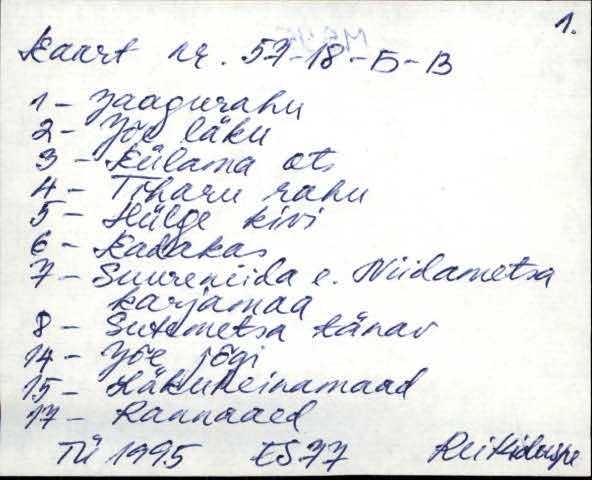 1.
Kaart nr. 57-18-Б-В
1 - Jaagurahu
2 - Jõe läku
3 - Külama ots
4 - Tiharu rahu
5 - Hülge kivi
6 - Kadakas
7 - Suureniida e. Niidametsa
karjamaa
8 - Suremetsa tänav
14 - Jõe jõgi
15 - Häkuheinamaad
17 - Rannaaed
TÜ 1995 ES77